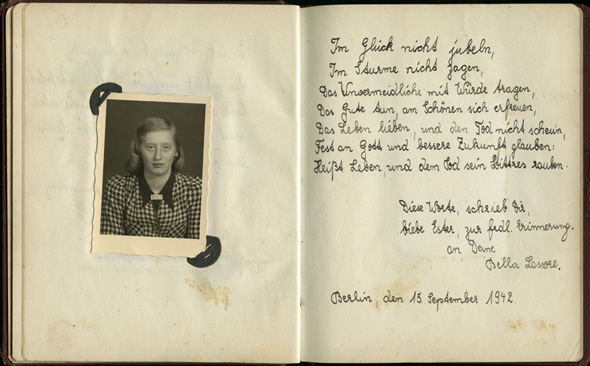 Im Glück nicht jubeln,
Im Sturme nicht zagen,
Das Unvermeidliche mit Würde tragen,
Das Gute tun, am Schönen sich erfreuen,
Das Leben lieben, und den Tod nicht scheun,
Fest an Gott und bessere Zukunft glauben:
Heißt Leben und dem Tod sein Bittres rauben.
Diese Worte, schrieb Dir,
liebe Ester, zur frdl. Erinnerung.
an Deine
Bella
Berlin, den 15. September 1942.